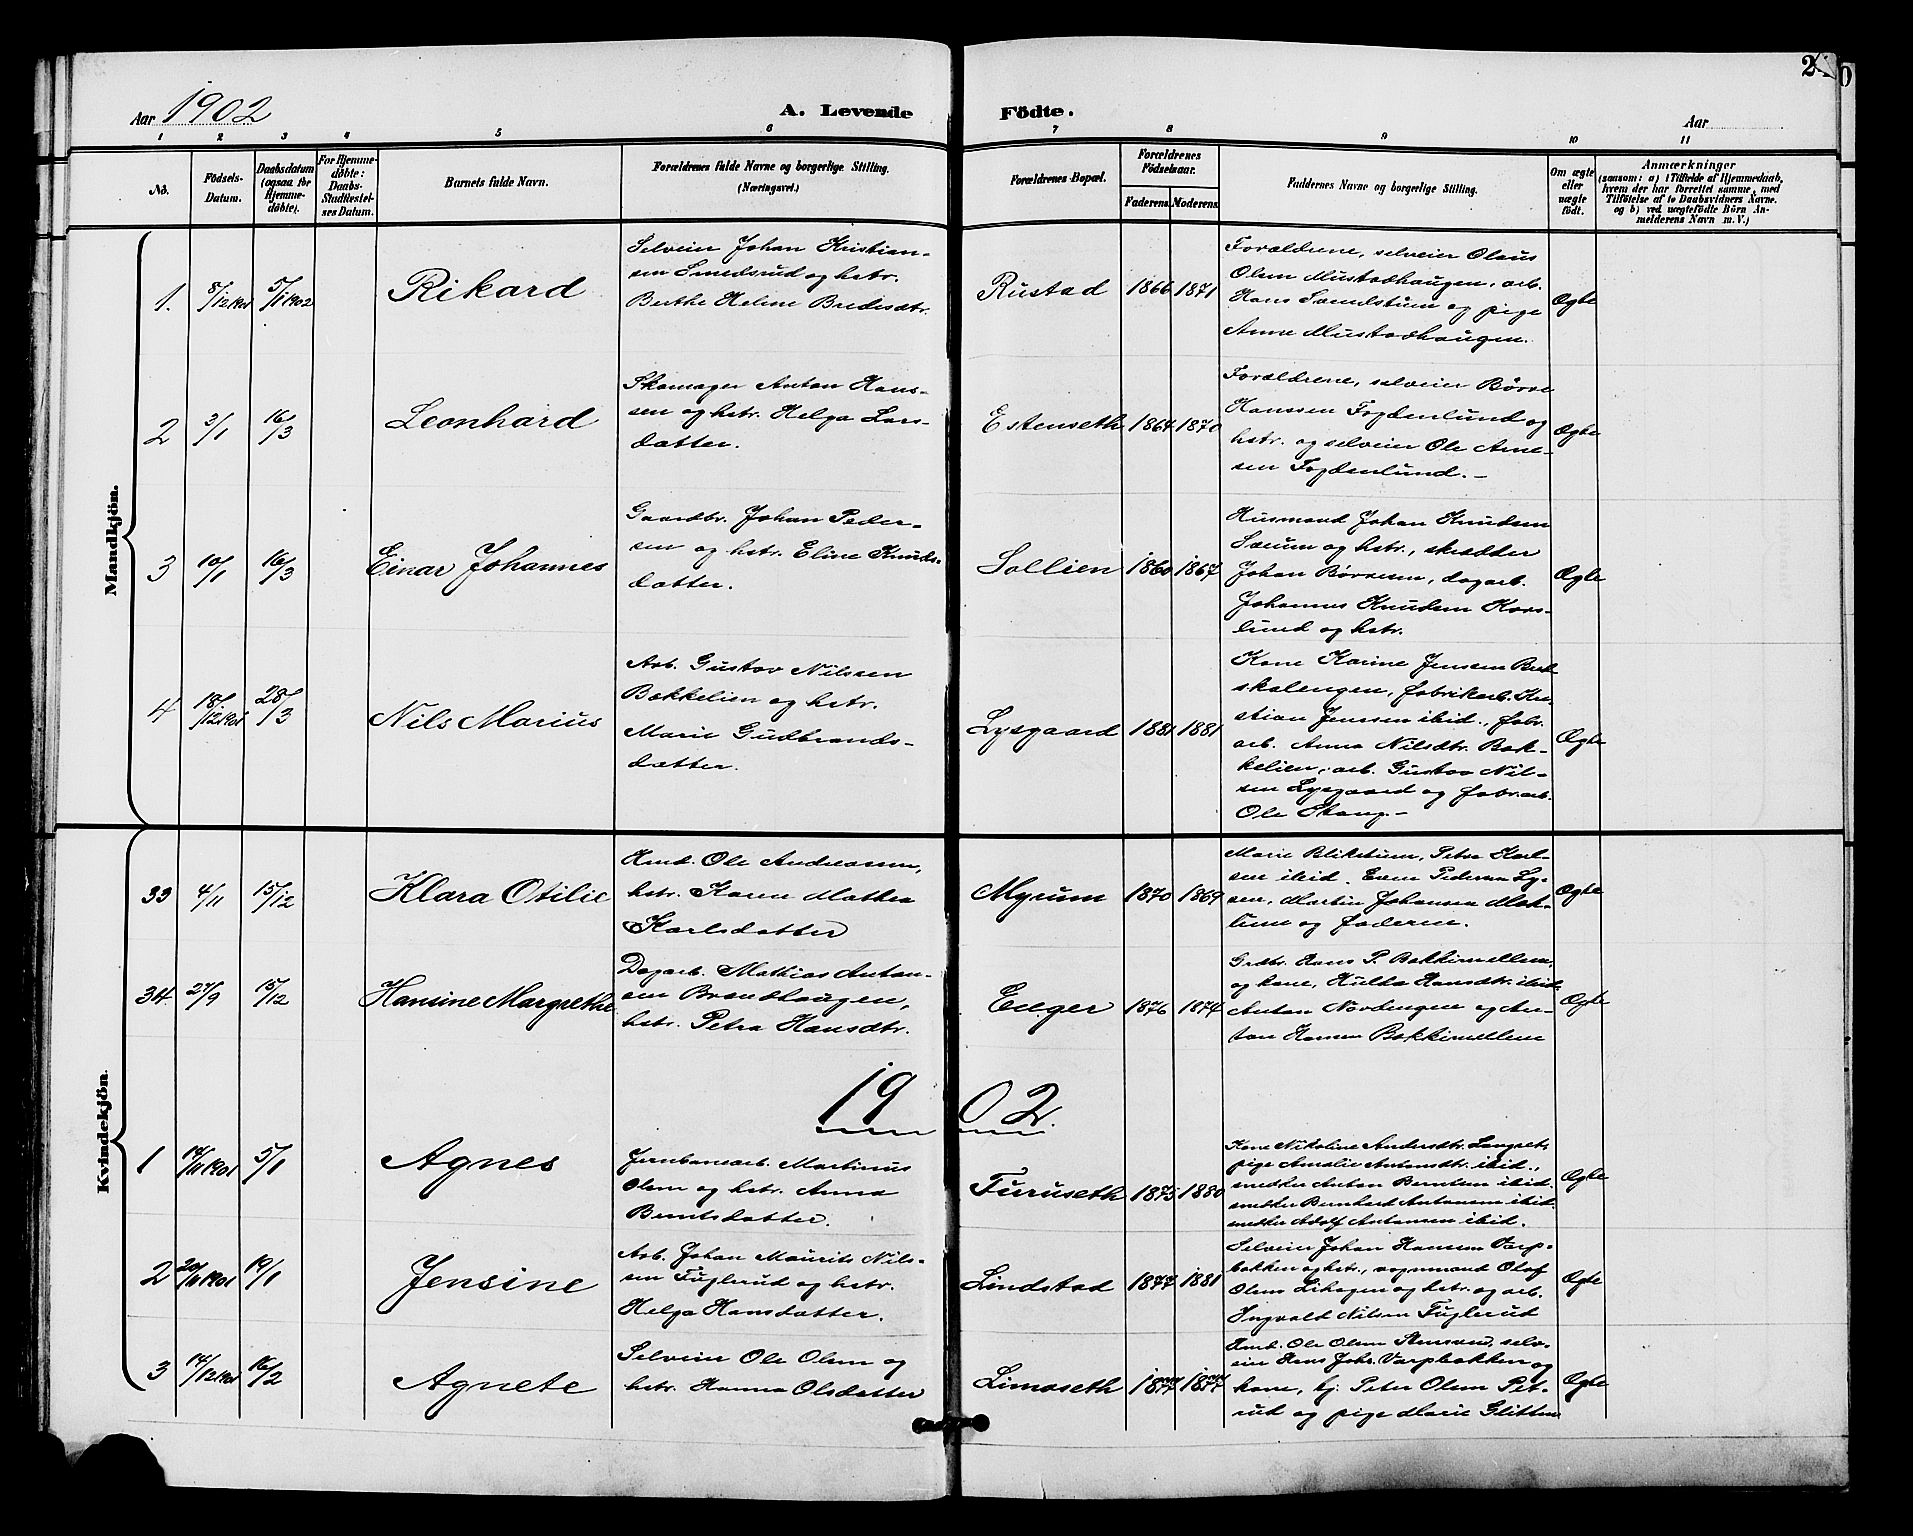 Aar 1902
A. Levende Födte.
Aar
24
1 2 3 4 5 6 7 8 9 10 11
No.
Födsels-
Datum.
Daabsdatum
(ogsaa for
Hjemme-
döbte).
For Hjemme-
döbte:
Daabs-
Stadfæstel-
ses Datum.
Barnets fulde Navn.
Forældrenes fulde Navne og borgerlige Stilling.
(Næringsvei.)
Forældrenes Bopæl.
Forældrenes
Födselsaar.
Faderens. Moderens.
Faddernes Navne og borgerlige Stilling.
Om ægte
eller
uægte
födt.
Anmærkninger
(saasom: a) i Tilfælde af Hjemmedaab,
hvem der har forrettet samme, med
Tilföielse af to Daabsvidners Navne.
og b) ved uægtefödte Börn An-
melderens Navn m. V.)
Mandkjön.
1. 8/12 1901 5/1 1902 Rikard
Selveier Johan Kristian-
sen Smedsrud og hstr.
Berthe Helene Bredesdtr.
Rustad 1866 1871
Forældrene, selveier Olaus
Olsen Mustadhaugen, arb.
Hans Sandstum og pige
Anne Mustadhaugen.
Ægte
2 3/1 16/3 Leonhard
Skomager Anton Hans-
sen og hstr. Helga Lars-
datter.
Estenseth 1864 1870
Forældrene, selveier Börre
Hanssen Fogdenlund og
hstr. og selveier Ole Arne-
sen Fogdenlund. -
Ægte
3 10/1 16/3 Einar Johannes
Gaardbr. Johan Peder-
sen og hstr. Eline Knuds-
datter.
Sollien 1860 1867
Husmand Johan Knudsen
Sæum og hstr., skrædder
Johan Børresen, dagarb.
Johannes Knudsen Kors-
lund og hstr.
Ægte
4 18/12 1901 28/3 Nils Marius
Arb. Gustav Nilssen
Bakkelien og hstr.
Marie Gudbrands-
datter.
Lysgaard 1881 1881
Kone Karine Jenssen Bræ-
skelengen, fabrikarb. Kri-
stian Jenssen ibid., fabr.
arb. Anna Nilsdtr. Bak-
kelien, arb. Gustav Nil-
sen Lysgaard og fabr.arb.
Ole Skaug. -
Ægte
Kvindekjön.
33 4/11 15/12 Klara Otilie
Hmd. Ole Andreassen,
hstr. Karen Mathea
Karlsdatter
Myrum 1870 1869
Marie Blikstum, Petra Karl-
sen ibid. Even Pedersen Ly-
sen, Martin Johansen Mat-
lum og faderen.
Ægte
34. 27/9 15/12 Hansine Margrethe
Dagarb. Mathias Anton-
sen Brandhaugen,
hstr. Petra Hansdtr.
Enger 1876 1874
Grdbr. Hans P. Bakkimellem,
og kone, Hulda Hansdtr. ibid.
Anton Nordengene og An-
ton Hansen Bakkimellem
Ægte
1902.
1 14/11 1901 5/1 Agnes
Jernbanearb. Martinus
Olsen og hstr. Anna
Berntsdatter.
Furuseth 1875 1880
Kone Nikoline Andersdtr. Langset,
pige Amalie Antonsdtr. ibid.,
snedker Anton Berntsen ibid.
snedker Bernhard Antonsen ibid.
snedker Adolf Antonsen ibid.
Ægte
2 20/11 1901 19/1 Jensine
Arb. Johan Maurits Nils-
sen Fuglerud og hstr.
Helga Hansdatter.
Lindstad 1877 1881
Selveier Johan Hansen Varp-
bakken og hstr., vognmand Olaf
Olsens Lihagen og hstr. og arb.
Ingvald Nilsen Fuglerud
Ægte
3 14/12 1901 16/2 Agnete
Selveier Ole Olsen og
hstr. Hanna Olsdatter
Limoseth 1877 1877
Hmd. Ole Olsen Stensvend, selv-
eier Hans Johs. Varpbakken og
kone, hj. Peter Olsen Pet-
rud og pige Marie Glitten
Ægte